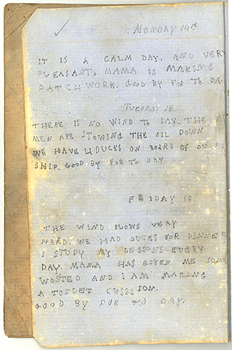 MONDAY
IT IS A CALM DAY. AND VERY
PLEASANT, MAMA IS MAKING
PATCHWORK. GOOD BY FOR TO DAY.
TUESDAY
THERE IS NO WIND TO DAY. THE
MEN ARE STOWING THE OIL DOWN
WE HAVE DUCKS ON BOARD OF OUR
SHIP. GOOD BY FOR TO DAY
FRIDAY
THE WIND BLOWS VERY
HARD. WE HAD DUCKS FOR DINNER
I STUDY MY LESSONS EVERY
DAY. MAMA HAS GIVEN ME SOME
WOSTED AND I AM MAKING
A TOILET CUSHION.
GOOD BY FOR TO DAY.